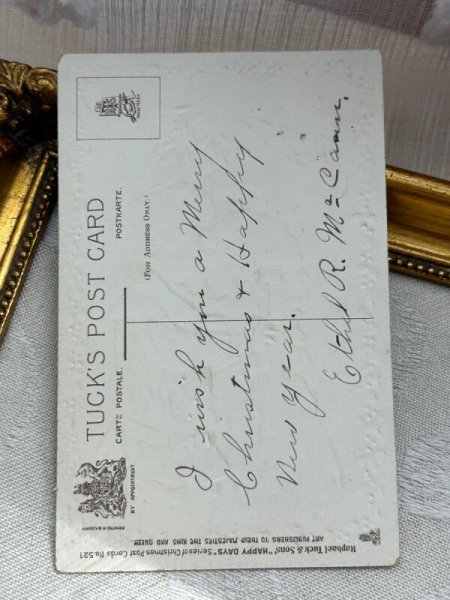 TUCK'S POST CARD
CARTE POSTALE. POSTKARTE.
(FOR ADDRESS ONLY.)
BY APPOINTMENT
PRINTED IN SAXONY
I wish you a Merry
Christmas & Happy
New Year.
Ethel R. McCann.
Raphael Tuck & Sons' "HAPPY DAYS" Series of Christmas Post Cards No. 521
ART PUBLISHERS TO THEIR MAJESTIES THE KING AND QUEEN